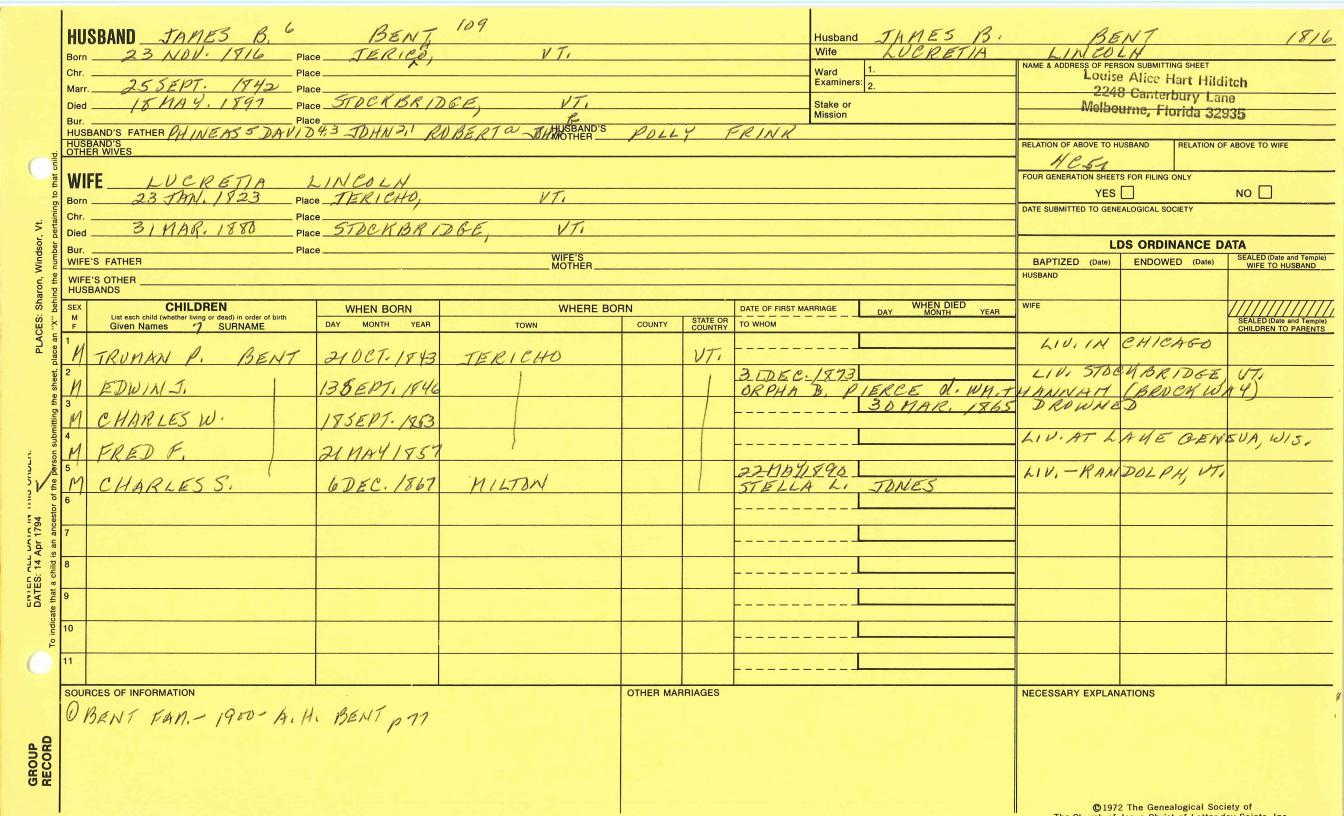 HUSBAND JAMES B. 6 BENT 109
Born 23 NOV. 1816 Place JERICO, VT.
Chr. Place
Marr. 25 SEPT. 1842 Place
Died 18 MAY. 1897 Place STOCKBRIDGE, VT.
Bur. Place
HUSBAND'S FATHER PHINEAS 5 DAVID 4,3 JOHN 2,1 ROBERT HUSBAND'S MOTHER POLLY FRINK
HUSBAND'S OTHER WIVES
WIFE LUCRETIA LINCOLN
Born 23 JAN. 1823 Place JERICHO, VT.
Chr. Place
Died 31 MAR. 1880 Place STOCKBRIDGE, VT.
Bur. Place
WIFE'S FATHER WIFE'S MOTHER
WIFE'S OTHER HUSBANDS
Husband JAMES B. BENT 1816
Wife LUCRETIA LINCOLN
Ward Examiners: 1.
2.
Stake or Mission
NAME & ADDRESS OF PERSON SUBMITTING SHEET
Louise Alice Hart Hilditch
2248 Canterbury Lane
Melbourne, Florida 32935
RELATION OF ABOVE TO HUSBAND RELATION OF ABOVE TO WIFE
FOUR GENERATION SHEETS FOR FILING ONLY
YES NO
DATE SUBMITTED TO GENEALOGICAL SOCIETY
LDS ORDINANCE DATA
BAPTIZED (Date) ENDOWED (Date) SEALED (Date and Temple) WIFE TO HUSBAND
HUSBAND
WIFE
SEALED (Date and Temple) CHILDREN TO PARENTS
SEX M F CHILDREN WHEN BORN WHERE BORN DATE OF FIRST MARRIAGE WHEN DIED
List each child (whether living or dead) in order of birth
Given Names SURNAME DAY MONTH YEAR TOWN COUNTY STATE OR COUNTRY TO WHOM DAY MONTH YEAR
1 M TRUMAN P. BENT 21 OCT. 1843 JERICHO VT. LIV. IN CHICAGO
2 3 DEC. 1873 LIV. STOCKBRIDGE VT.
M EDWIN J. 13 SEPT. 1846 ORPHA B. PIERCE d. WM. + HANNAH (BROCKWAY)
3 30 MAR. 1865 DROWNED
M CHARLES W. 18 SEPT. 1853
4 M FRED F. 21 MAY 1857 LIV. AT LAKE GENEVA, WIS.
5 22 MAY 1890 LIV. - RANDOLPH, VT.
M CHARLES S. 6 DEC. 1867 MILTON STELLA L. JONES
6
7
8
9
10
11
SOURCES OF INFORMATION OTHER MARRIAGES NECESSARY EXPLANATIONS
① BENT FAM. - 1900 - A. H. BENT p 77
©1972 The Genealogical Society of
The Church of Jesus Christ of Latter-day Saints, Inc.
PLACES: Sharon, Windsor, Vt.
DATES: 14 Apr 1794
To indicate that a child is an ancestor of the person submitting the sheet, place an "X" behind the number pertaining to that child.
GROUP RECORD